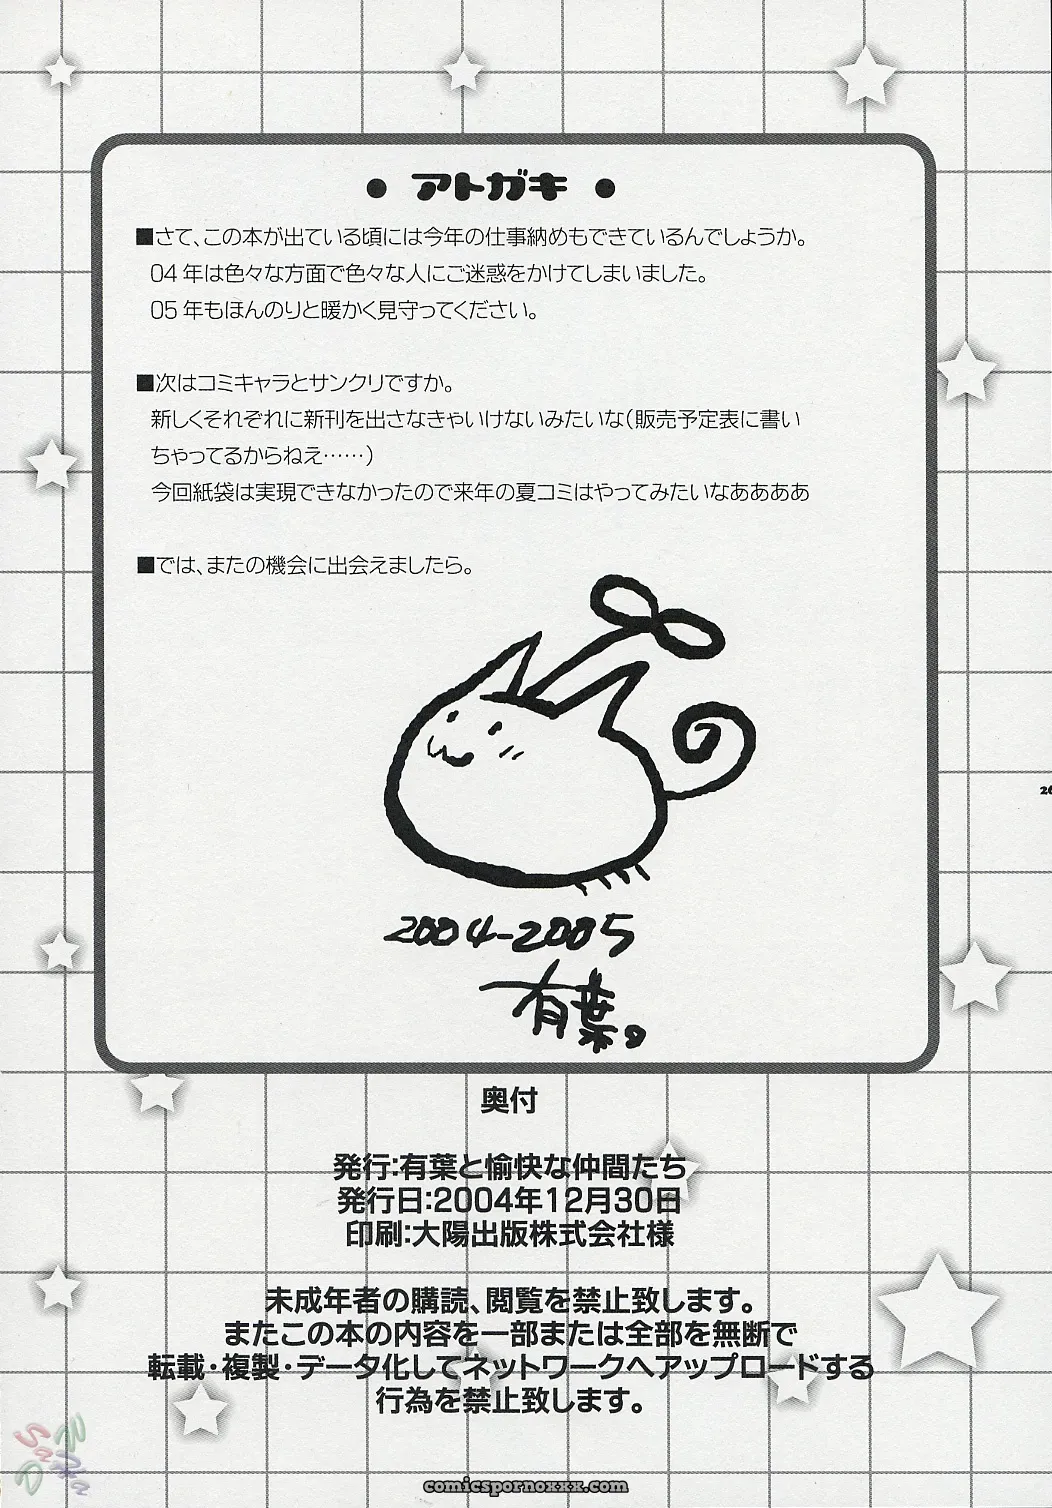 • アトガキ •
■さて、この本が出ている頃には今年の仕事納めもできているんでしょうか。
04年は色々な方面で色々な人にご迷惑をかけてしまいました。
05年もほんのりと暖かく見守ってください。
■次はコミキャラとサンクリですか。
新しくそれぞれに新刊を出さなきゃいけないみたいな(販売予定表に書い
ちゃってるからねえ……)
今回紙袋は実現できなかったので来年の夏コミはやってみたいなああああ
■では、またの機会に出会えましたら。
26
2004-2005
有葉。
奥付
発行:有葉と愉快な仲間たち
発行日:2004年12月30日
印刷:大陽出版株式会社様
未成年者の購読、閲覧を禁止致します。
またこの本の内容を一部または全部を無断で
転載・複製・データ化してネットワークへアップロードする
行為を禁止致します。
comicspornoxxx.com